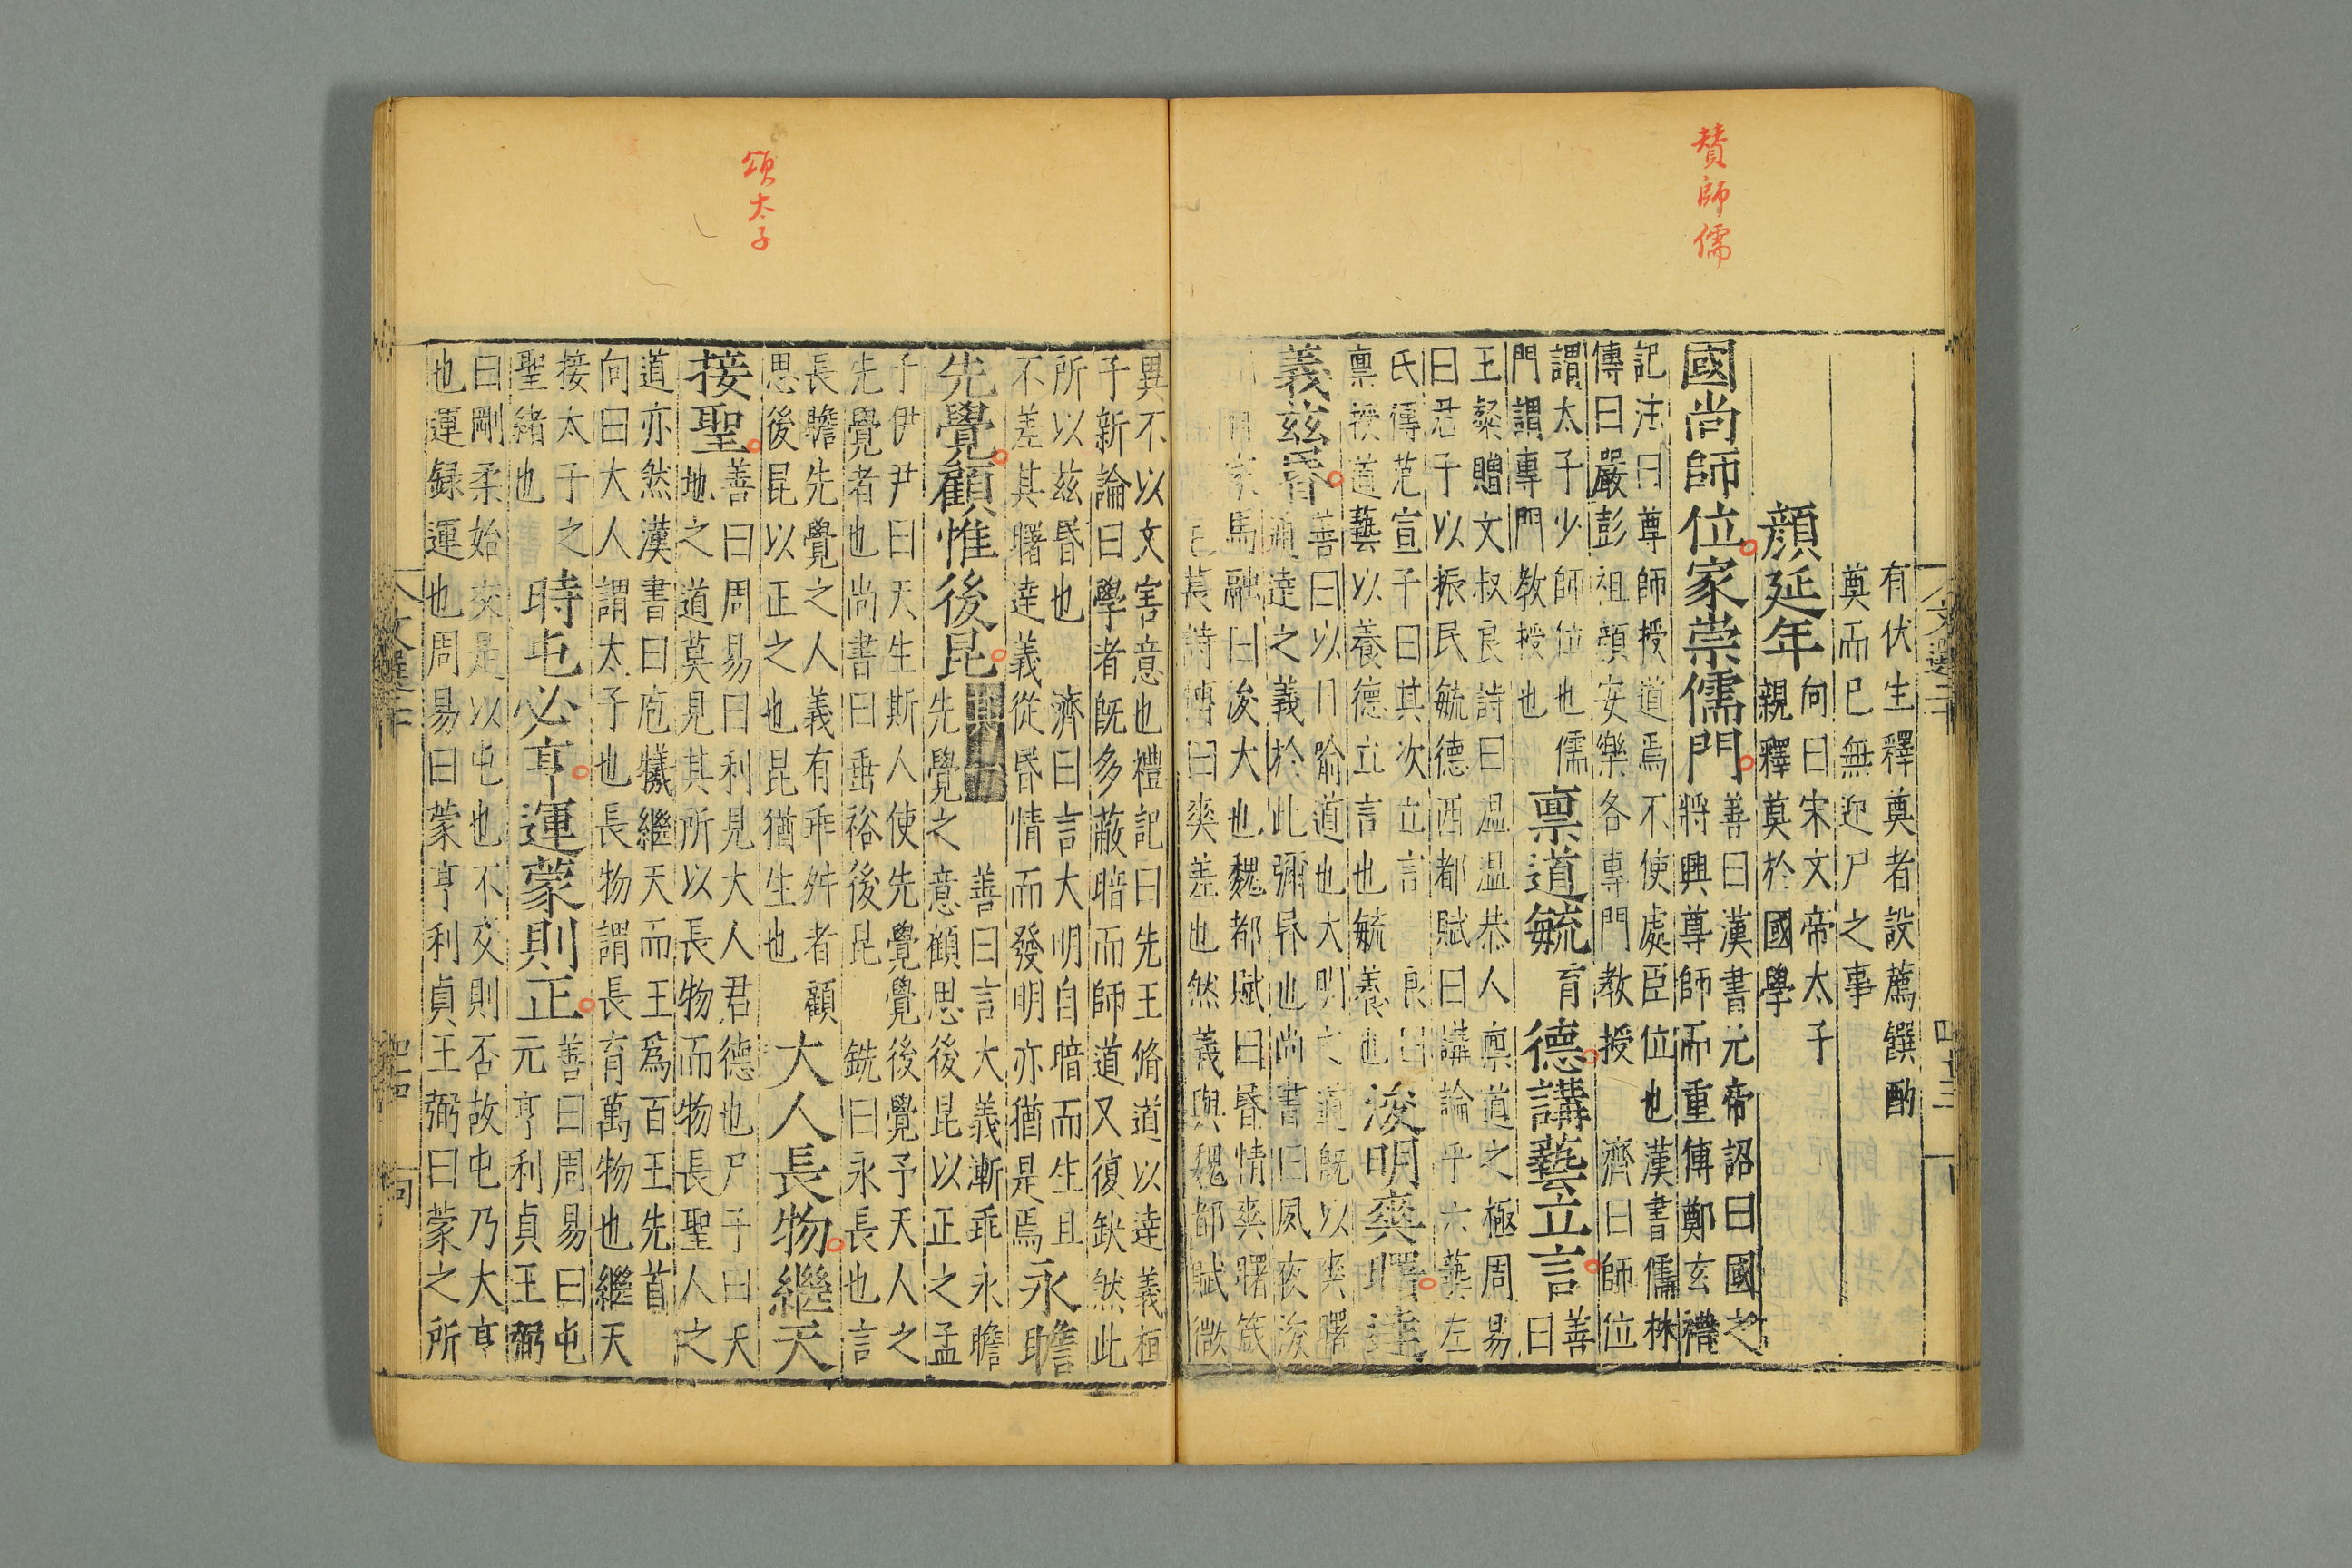 賛師儒
有伏生釋奠者設薦饌酌
奠而已無迎尸之事
顏延年
向曰宋文帝太子
親釋奠於國學
國尚師位家崇儒門
善曰漢書元帝詔曰國之
將興尊師而重傅鄭玄禮
記注曰尊師授道焉不使處臣位也漢書儒林
傳曰嚴彭祖顏安樂各專門教授
濟曰師位
謂太子少師位也儒
門謂專門教授也
禀道毓
育
德講藝立言
善
曰
王粲贈文叔良詩曰温温恭人禀道之極周易
曰君子以振民毓德西都賦曰講論乎六藝左
氏傳范宣子曰其次立言
良曰
禀授道藝以養德立言也毓養也
浚明爽曙達
義兹昏
善曰以日喻道也大明之道既以爽曙
通達之義於此彌昇也尚書曰夙夜浚
明
家馬融曰浚大也魏都賦曰昏情爽曙箴
萇詩傳曰爽差也然義與魏都賦微
頌太子
異不以文害意也禮記曰先王脩道以達義桓
子新論曰學者既多蔽暗而師道又復缺然此
所以兹昏也
濟曰言大明自暗而生且
不差其曙達義從昏情而發明亦猶是焉
永瞻
先覺顧惟後昆
善曰言大義漸乖永瞻
先覺之意顧思後昆以正之孟
子伊尹曰天生斯人使先覺覺後覺予天人之
先覺者也尚書曰垂裕後昆
銑曰永長也言
長瞻先覺之人義有乖舛者顧
思後昆以正之也昆猶生也
大人長物繼天
接聖
善曰周易曰利見大人君德也尸子曰天
地之道莫見其所以長物而物長聖人之
道亦然漢書曰庖犧繼天而王爲百王先首
向曰大人謂太子也長物謂長育萬物也繼天
接太子之
聖緒也
時屯必亨運蒙則正
善曰周易曰屯
元亨利貞王弼
曰剛柔始交是以屯也不交則否故屯乃大亨
也運録運也周易曰蒙亨利貞王弼曰蒙之所